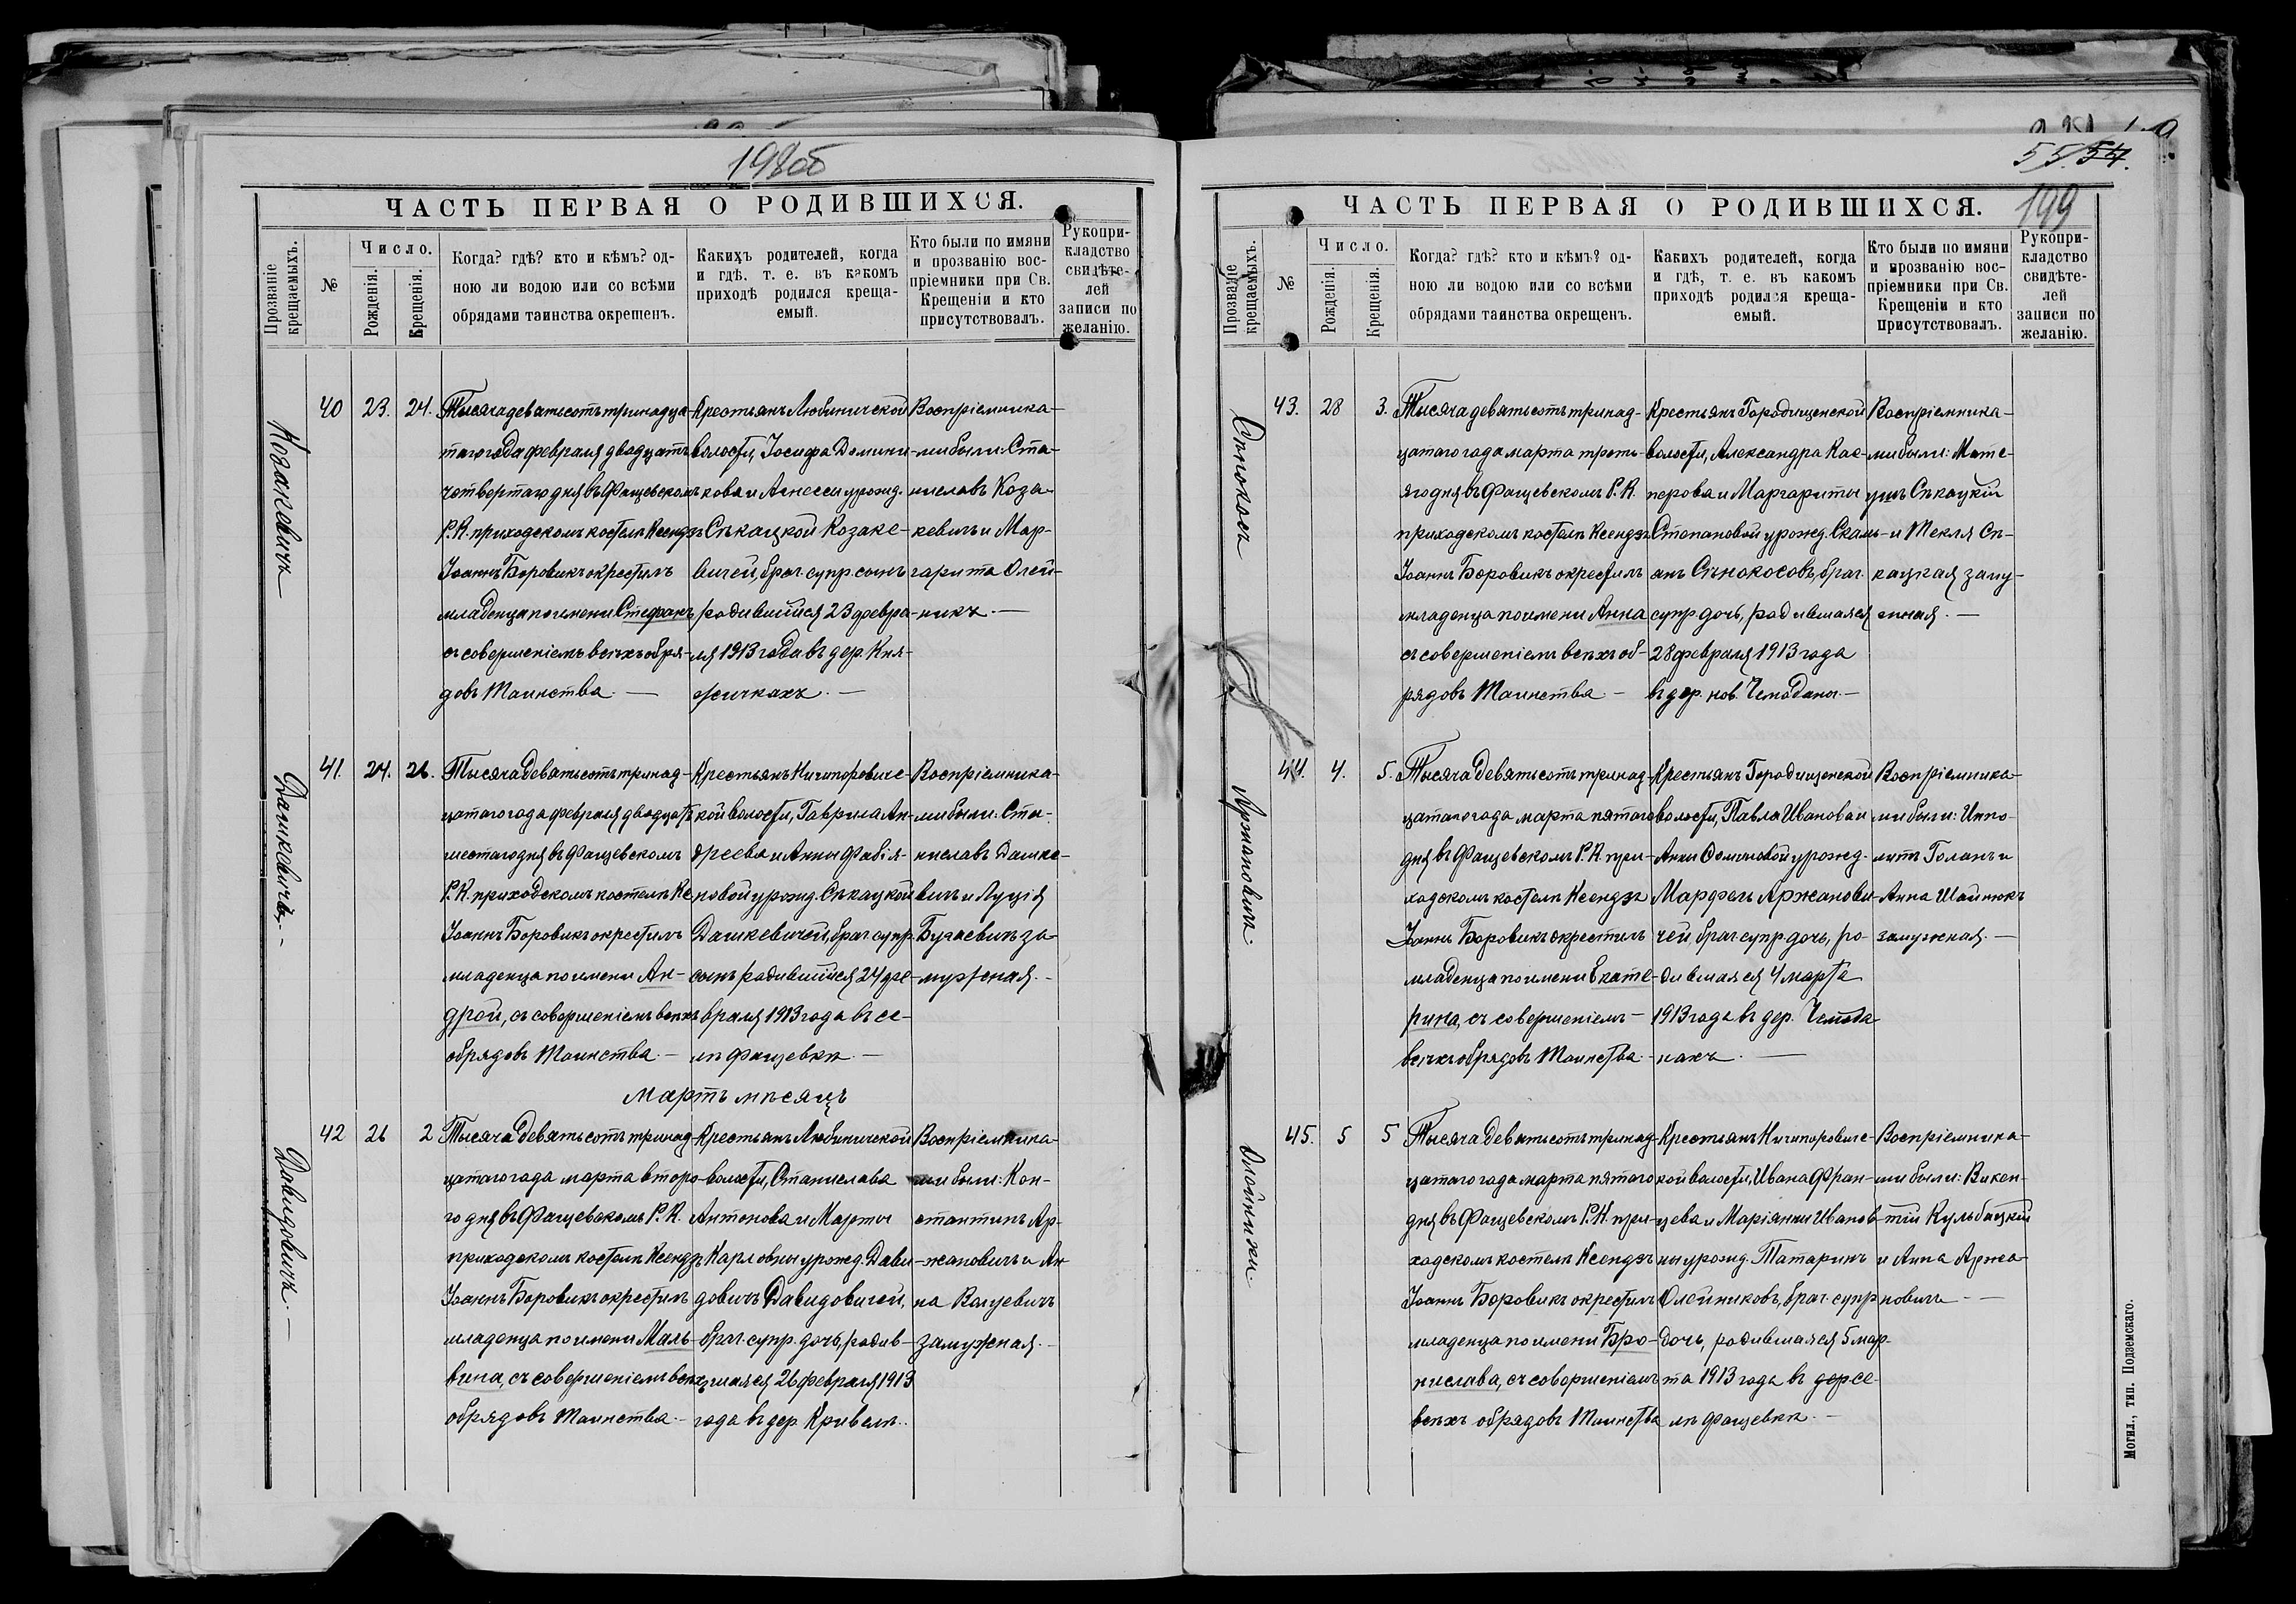 198об
ЧАСТЬ ПЕРВАЯ О РОДИВШИХСЯ.
Прозваніе крещаемыхъ.
№
Число.
Рожденія.
Крещенія.
Когда? гдѣ? кто и кѣмъ? од-
ною ли водою или со всѣми
обрядами таинства окрещенъ.
Какихъ родителей, когда
и гдѣ, т. е. въ какомъ
приходѣ родился креща-
емый.
Кто были по имяни
и прозванію вос-
пріемники при Св.
Крещеніи и кто
присутствовалъ.
Рукопри-
кладство
свидѣте-
лей
записи по
желанію.
Козакевичъ
40
23.
24.
Тысяча девятьсотъ тринадца-
таго года февраля двадцать
четвертаго дня въ Фащевскомъ
Р.К. приходскомъ костелѣ Ксендзъ
Іоаннъ Боровикъ окрестилъ
младенца по имени Стефанъ,
съ совершеніемъ всѣхъ обря-
довъ Таинства. —
Крестьянъ Любиничской
волости, Іосифа Домини-
кова и Агнессы урожд.
Сѣкацкой Козаке-
вичей, брач. супр. сынъ
родившійся 23 февра-
ля 1913 года въ дер. Кня-
жичкахъ. —
Воспріемника-
ми были: Ста-
ниславъ Коза-
кевичъ и Мар-
гарита Олей-
никъ. —
Дашкевичъ. —
41.
24.
26.
Тысяча девятьсотъ тринад-
цатаго года февраля двадцать
шестаго дня въ Фащевскомъ
Р.К. приходскомъ костелѣ Кс.
Іоаннъ Боровикъ окрестилъ
младенца по имени Ан-
дрей, съ совершеніемъ всѣхъ
обрядовъ Таинства. —
Крестьянъ Ничипоровичс-
кой волости, Гаврила Ан-
дреева и Анны Фабія-
новой урожд. Сѣкацкой
Дашкевичей, брач. супр.
сынъ родившійся 24 фе-
враля 1913 года въ се-
лѣ Фащевкѣ. —
Воспріемника-
ми были: Ста-
ниславъ Дашке-
вичъ и Луція
за-
мужная. -
Мартъ мѣсяцъ
Давидовичъ. —
42
26
2
Тысяча девятьсотъ тринад-
цатаго года марта второ-
го дня въ Фащевскомъ Р.К.
приходскомъ костелѣ Ксендзъ
Іоаннъ Боровикъ окрестилъ
младенца по имени Маль-
вина, съ совершеніемъ всѣхъ
обрядовъ Таинства. —
Крестьянъ Любиничской
волости, Станислава
Антонова и Марты
Карловны урожд. Дави-
довичъ Давидовичей,
брач. супр. дочь, родив-
шаяся 26 февраля 1913
года въ дер. Кривелѣ.
Воспріемника-
ми были: Кон-
стантинъ Ар-
жановичъ и Ан-
на Валуевичъ
замужная. -
55. 54.
199
ЧАСТЬ ПЕРВАЯ О РОДИВШИХСЯ.
Прозваніе крещаемыхъ.
№
Число.
Рожденія.
Крещенія.
Когда? гдѣ? кто и кѣмъ? од-
ною ли водою или со всѣми
обрядами таинства окрещенъ.
Какихъ родителей, когда
и гдѣ, т. е. въ какомъ
приходѣ родился креща-
емый.
Кто были по имяни
и прозванію вос-
пріемники при Св.
Крещеніи и кто
присутствовалъ.
Рукопри-
кладство
свидѣте-
лей
записи по
желанію.
Сѣнокосъ
43.
28
3.
Тысяча девятьсотъ тринад-
цатаго года марта треть-
яго дня въ Фащевскомъ Р.К.
приходскомъ костелѣ Ксендзъ
Іоаннъ Боровикъ окрестилъ
младенца по имени Анна
съ совершеніемъ всѣхъ об-
рядовъ Таинства. —
Крестьянъ Городищенской
волости, Александра Кас-
перова и Маргариты
Степановой урожд.
Сѣнокосовъ, брач.
супр. дочь, родившаяся
28 февраля 1913 года
въ дер. нов. Чемоданы. —
Воспріемника-
ми были: Мате-
ушъ Сѣкацкій
и Текля Сѣ-
кацкая заму-
жная. —
Аржановичъ.
44.
4.
5.
Тысяча девятьсотъ тринад-
цатаго года марта пятаго
дня въ Фащевскомъ Р.К. при-
ходскомъ костелѣ Ксендзъ
Іоаннъ Боровикъ окрестилъ
младенца по имени Екате-
рина, съ совершеніемъ —
всѣхъ обрядовъ Таинства. —
Крестьянъ Городищенской
волости, Павла Иванова и
Анны урожд.
Марфель Аржанови-
чей, брач. супр. дочь, ро-
дившаяся 4 марта
1913 года въ дер. Чемода-
нахъ. —
Воспріемника-
ми были: Иппо-
литъ Голанъ и
Анна Шайнюкъ
замужная. —
Олейники
45.
5
5
Тысяча девятьсотъ тринад-
цатаго года марта пятаго
дня въ Фащевскомъ Р.К. при-
ходскомъ костелѣ Ксендзъ
Іоаннъ Боровикъ окрестилъ
младенца по имени Бро-
нислава, съ совершеніемъ
всѣхъ обрядовъ Таинства
Крестьянъ Ничипоровичс-
кой волости, Ивана Фран-
цева и Маріянны Иванов-
ны урожд. Татаринъ
Олейниковъ, брач. супр.
дочь, родившаяся 5 мар-
та 1913 года въ дер се-
лѣ Фащевкѣ. —
Воспріемника-
ми были: Викен-
тій Кульбацкій
и Анна Аржа-
новичъ —
Могил., тип. Подземскаго.